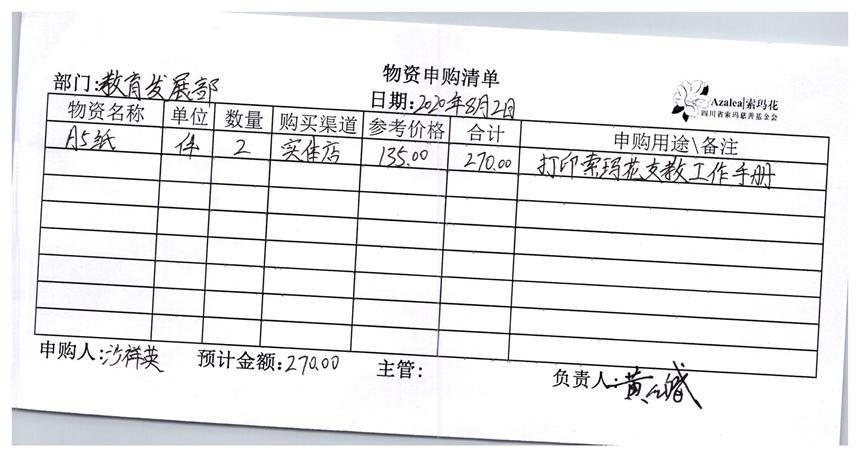 物资申购清单
部门:教育发展部
日期:2020年8月2日
Azalea|索玛花
四川省索玛慈善基金会
物资名称 单位 数量 购买渠道 参考价格 合计 申购用途\备注
A5纸 件 2 实体店 135.00 270.00 打印索玛花支教工作手册
申购人:沙祥英 预计金额:270.00 主管: 负责人:黄